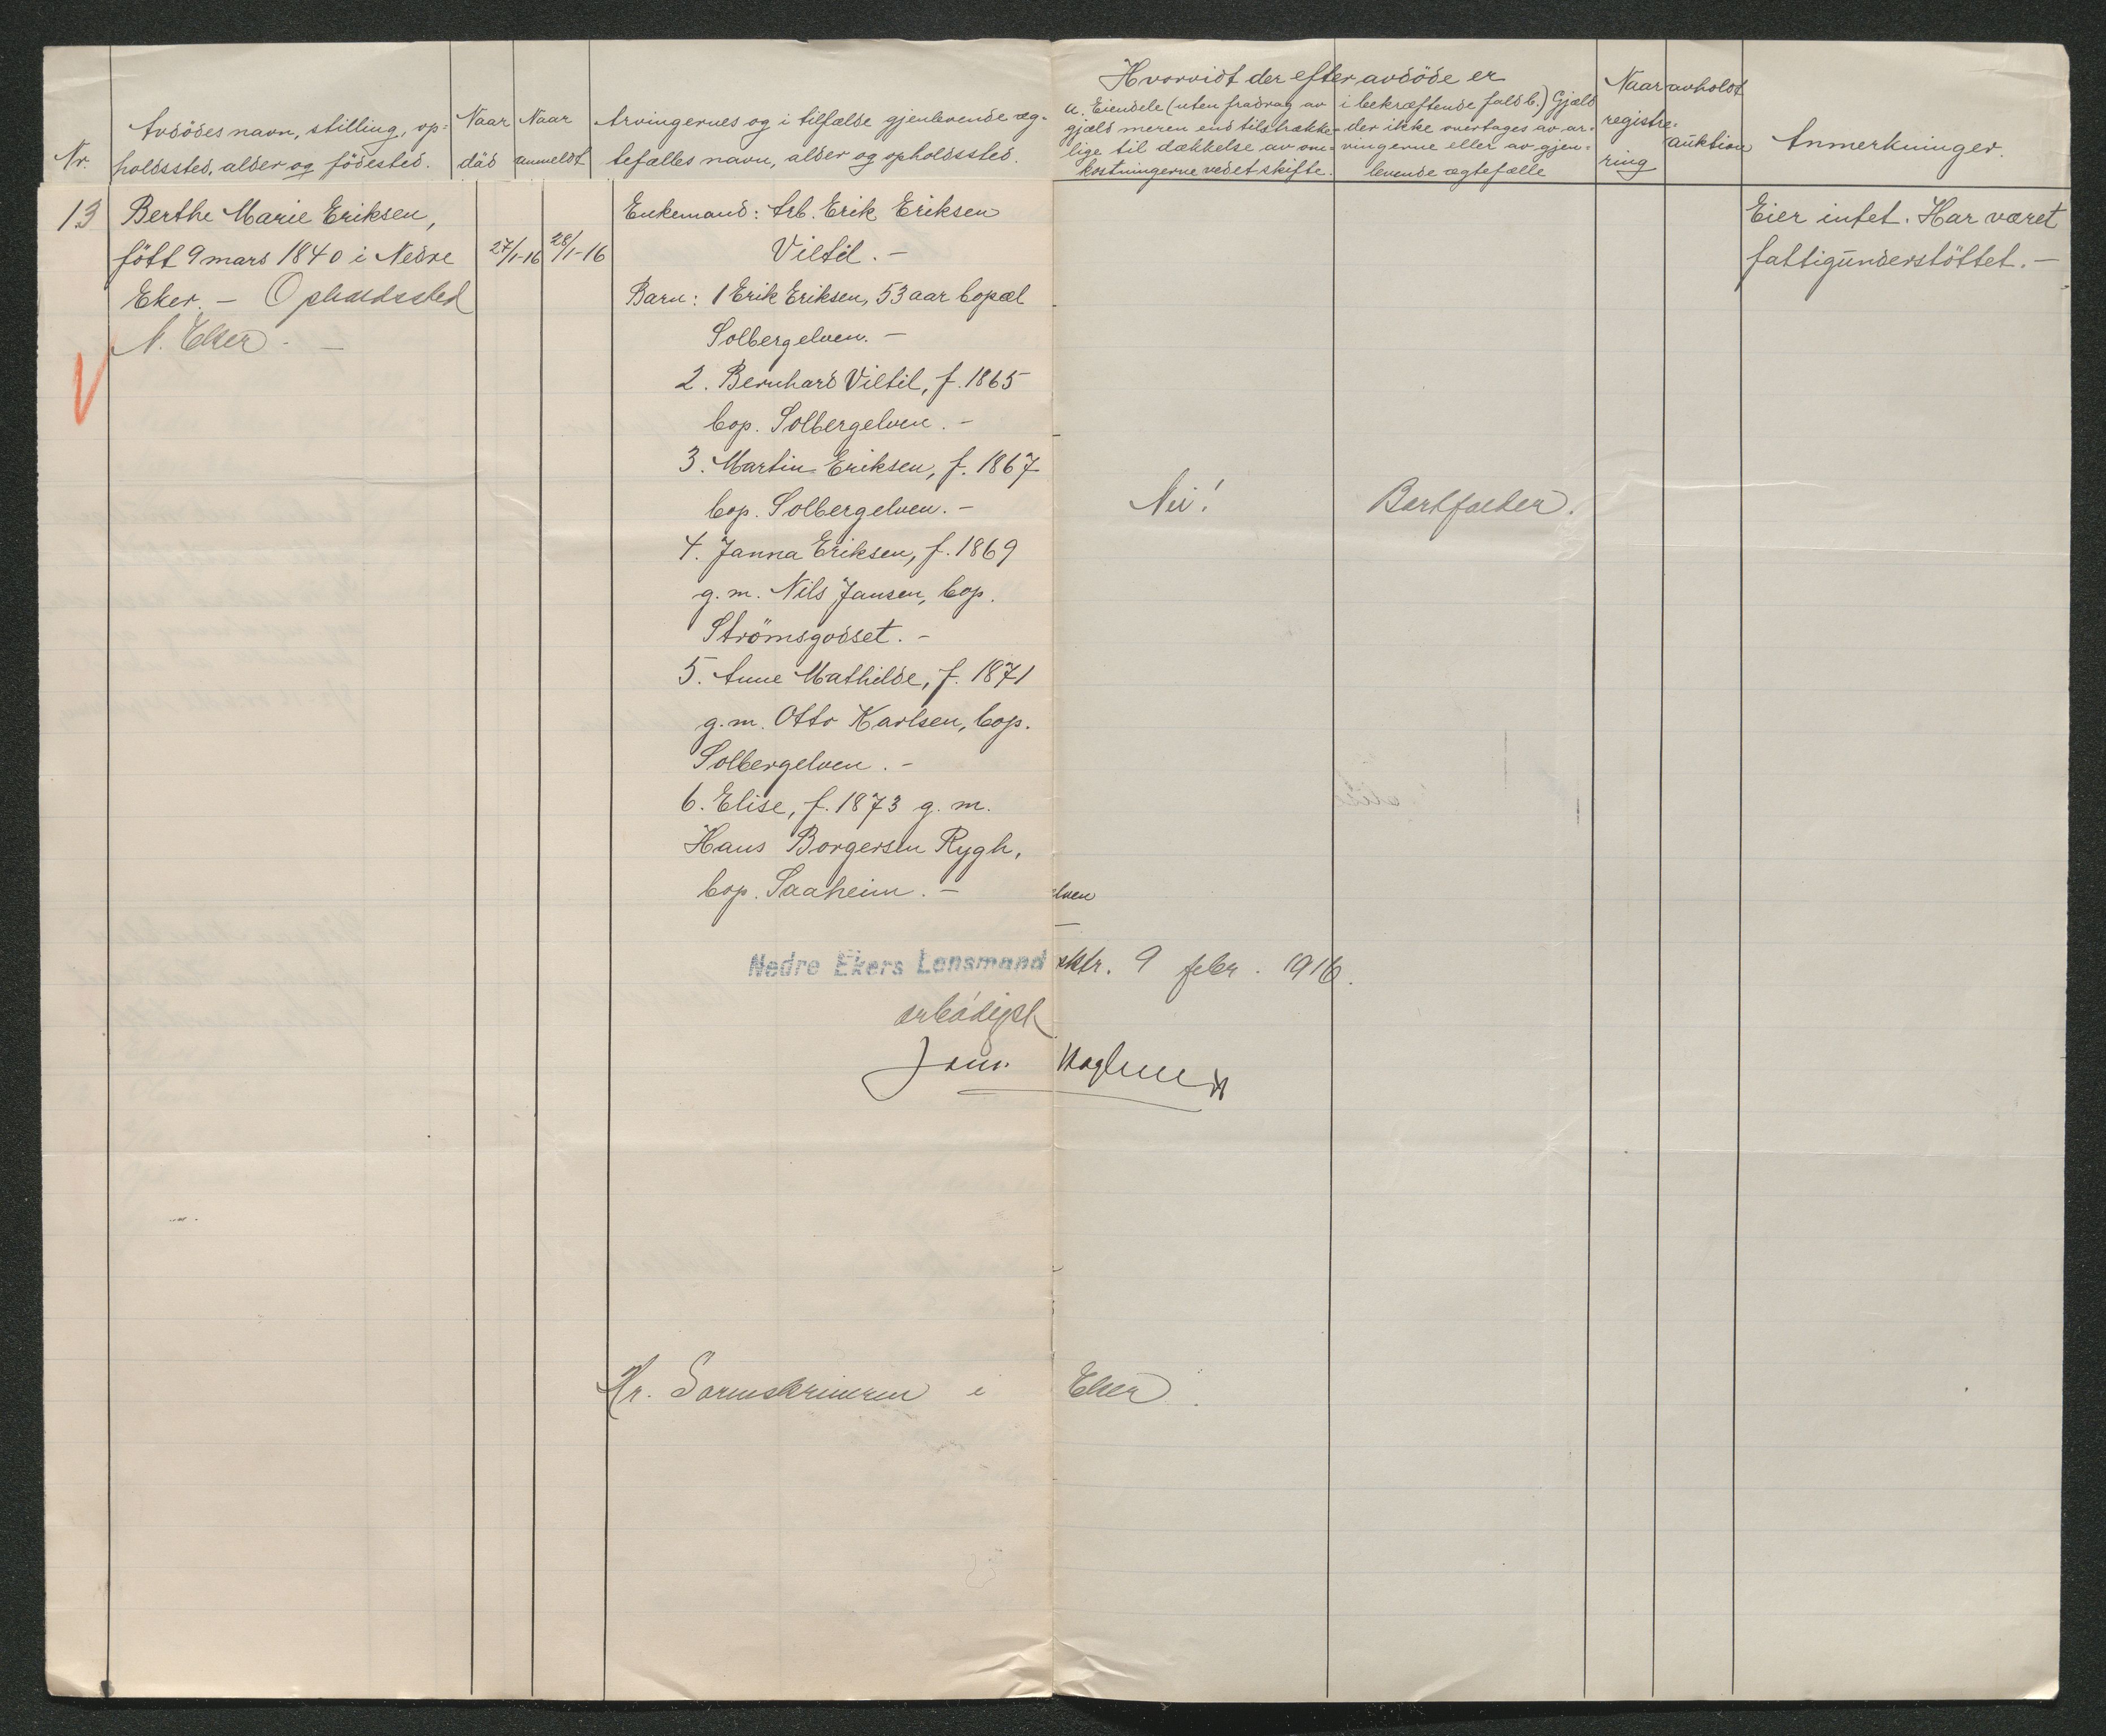 Nr.
Avdödes navn, stilling, op-
holdssted, alder og födested.
Naar
död
Naar
anmeldt
Arvingernes og i tilfælde gjenlevende æg-
tefælles navn, alder og opholdssted.
Hvorvidt der efter avdöde er
a. Eiendele (uten fradrag av
gjæld meren end tilstrække-
lige til dækkelse av om-
kostningerne vedet skifte.
i bekræftende fald b.) Gjæld
der ikke overtages av ar-
vingerne eller av gjen-
levende ægtefælle
Naar avholdt
registre-
ring
auktion
Anmerkninger.
13
Berthe Marie Eriksen,
fött 9 mars 1840 i Nedre
Eker. - Opholdssted
N. Eker. -
27/1-16
28/1-16
Enkemand: Arb. Erik Eriksen
Viltil. -
Barn: 1 Erik Eriksen, 53 aar bopæl
Solbergelven. -
2. Bernhard Viltil, f. 1865
bop. Solbergelven. -
3. Martin Eriksen, f. 1867
bop. Solbergelven. -
4. Janna Eriksen, f. 1869
g. m. Nils Jansen, bop.
Strömsgodset. -
5. Anne Mathilde, f. 1871
g. m. Otto Karlsen, bop.
Solbergelven. -
6. Elise, f. 1873 g. m.
Hans Borgersen Rygh,
bop. Saaheim. -
Nei!
Bortfalder.
Eier intet. Har været
fattigunderstöttet. -
elven
Nedre Ekers Lensmand ktr. 9 febr. 1916.
ærbödigst
Hr. Sorenskriveren i Eker.